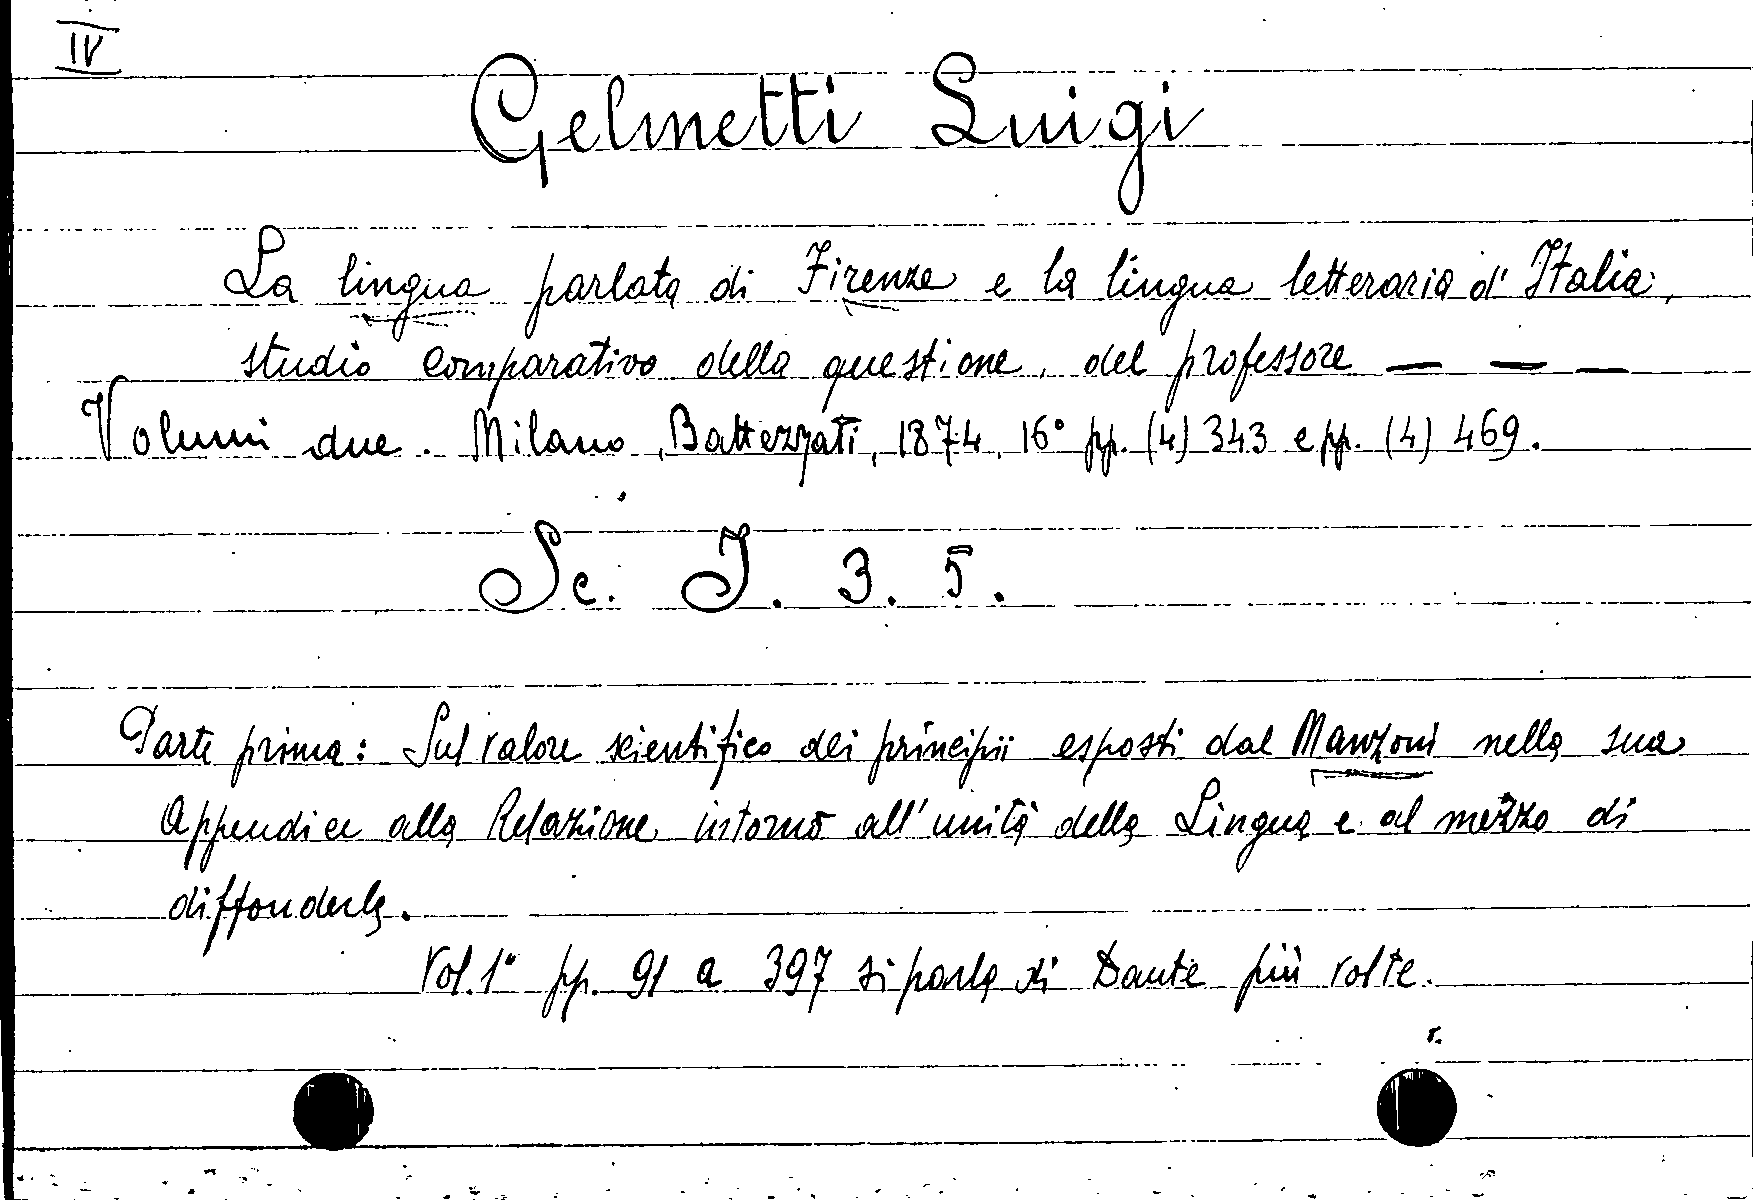 IV
Gelmetti Luigi
La lingua parlata di Firenze e la lingua letteraria d'Italia,
studio comparativo della questione, del professore — — —
Volumi due. Milano, Battezzati, 1874, 16° pp. (4) 343 e pp. (4) 469.
Sc. I. 3. 5.
Parte prima: Sul valore scientifico dei principii esposti dal Manzoni nella sua
Appendice alla Relazione intorno all'unità della Lingua e al mezzo di
diffonderla.
Vol. 1° pp. 91 a 397 si parla di Dante più volte.